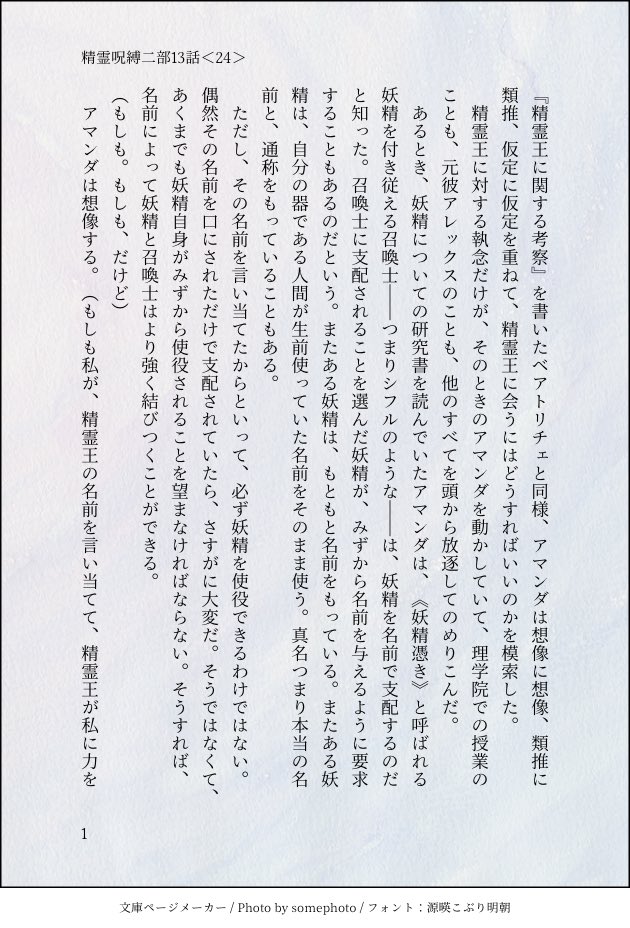 精霊呪縛二部13話＜24＞
『精霊王に関する考察』を書いたベアトリチェと同様、アマンダは想像に想像、類推に
類推、仮定に仮定を重ねて、精霊王に会うにはどうすればいいのかを模索した。
　精霊王に対する執念だけが、そのときのアマンダを動かしていて、理学院での授業の
ことも、元彼アレックスのことも、他のすべてを頭から放逐してのめりこんだ。
　あるとき、妖精についての研究書を読んでいたアマンダは、《妖精憑き》と呼ばれる
妖精を付き従える召喚士――つまりシフルのような――は、妖精を名前で支配するのだ
と知った。召喚士に支配されることを選んだ妖精が、みずから名前を与えるように要求
することもあるのだという。またある妖精は、もともと名前をもっている。またある妖
精は、自分の器である人間が生前使っていた名前をそのまま使う。真名つまり本当の名
前と、通称をもっていることもある。
　ただし、その名前を言い当てたからといって、必ず妖精を使役できるわけではない。
偶然その名前を口にされただけで支配されていたら、さすがに大変だ。そうではなくて、
あくまでも妖精自身がみずから使役されることを望まなければならない。そうすれば、
名前によって妖精と召喚士はより強く結びつくことができる。
（もしも。もしも、だけど）
　アマンダは想像する。（もしも私が、精霊王の名前を言い当てて、精霊王が私に力を
1
文庫ページメーカー / Photo by somephoto / フォント：源暎こぶり明朝